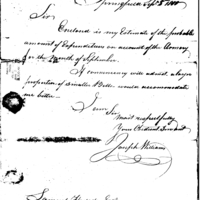 Springfield Sept 8 1800
Sir
Enclosed is my Estimate of the probable
amount of Expenditures on account of the Armory
for the Month of September.
If economy will admit, a large
proportion of smaller Bills would accommodate
me better.
I am Sir
most respectfully
Your Obedient Servant
Joseph Williams